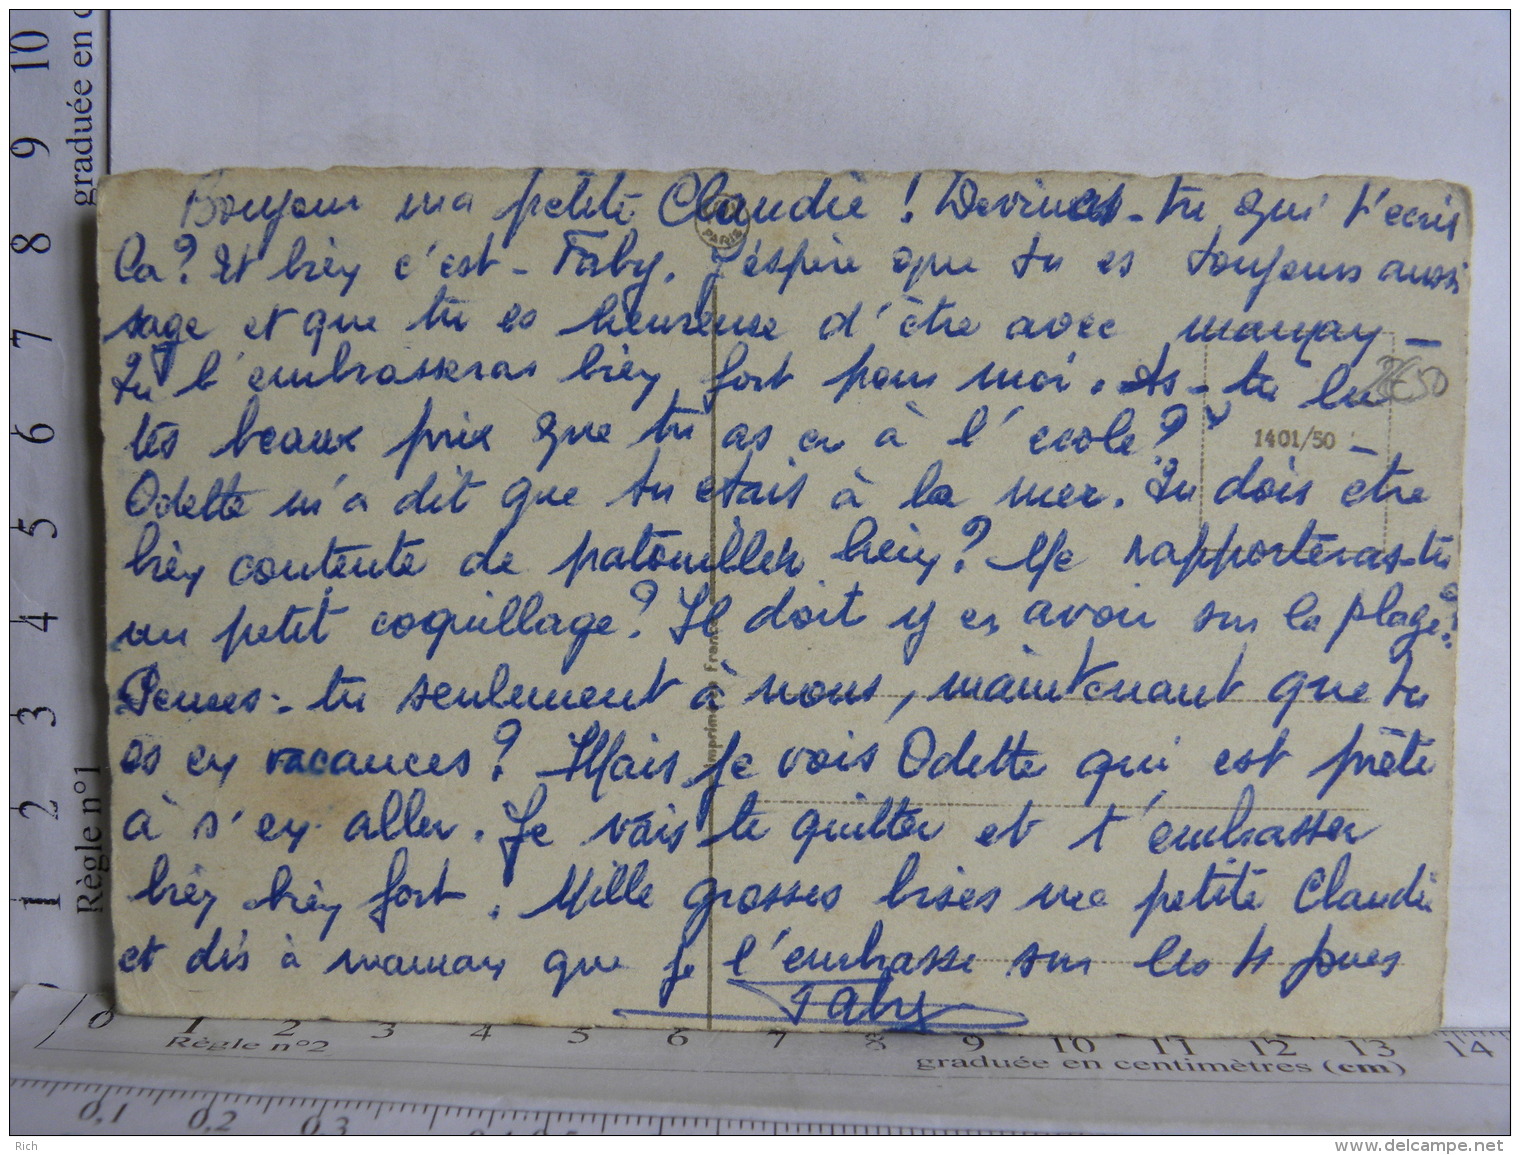 Bonjour ma petite Claudie ! Devines-tu qui t'ecris
ca ? Et bien c'est - Faby. J'éspère que tu es toujours aussi
sage et que tu es heureuse d'être avec maman -
Tu l'embrasseras bien fort pour moi. As-tu lu
tes beaux prix que tu as eu à l'ecole ? -
Odette m'a dit que tu etais à la mer. Tu dois etre
bien contente de patouiller hein ? Me rapporteras-tu
un petit coquillage ? Il doit y en avoir sur la plage ?
Penses-tu seulement à nous, maintenant que tu
es en vacances ? Mais je vois Odette qui est prête
à s'en aller. Je vais te quitter et t'embrasser
bien bien fort. Mille grosses bises ma petite Claudie
et dis à maman que je l'embrasse sur les 4 joues
Faby
PARIS
1401/50
Imprimé France
10
9
8
7
6
5
4
3
2
1
graduée en c
Règle n°1
0 1 2 3 4 5 6 7 8 9 10 11 12 13 14
Règle n°2
graduée en centimètres (cm)
0,1 0,2 0,3
Rich
www.delcampe.net